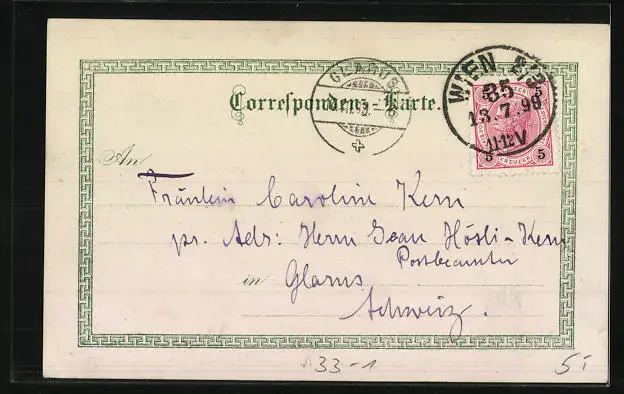 Correspondenz-Karte.
GLARUS
WIEN
85
13.7.98
11-12V
5 5
KREUZER
5 5
An
Fräulein Caroline Kern
pr. Adr: Herrn Jean Hösli-Kern
Postbeamter
in Glarus
Schweiz.
33-1
5.-